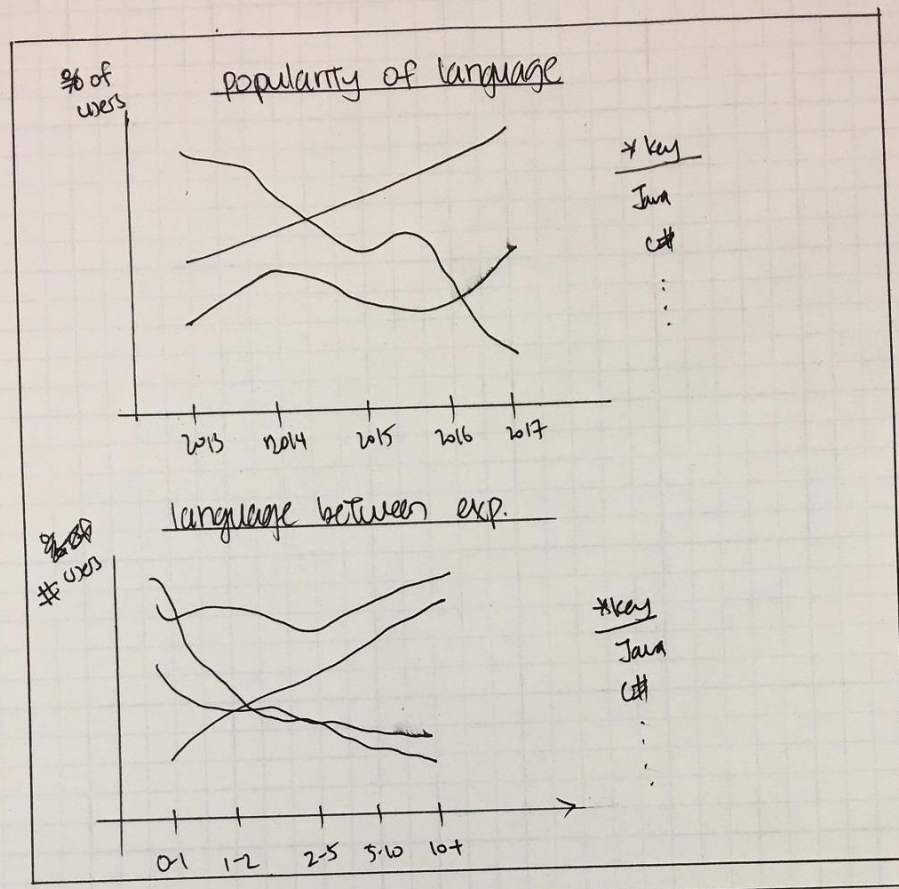 % of
users
popularity of language
* key
Java
C#
2013 2014 2015 2016 2017
language between exp.
# users
*key
Java
C#
0-1 1-2 2-5 5-10 10+